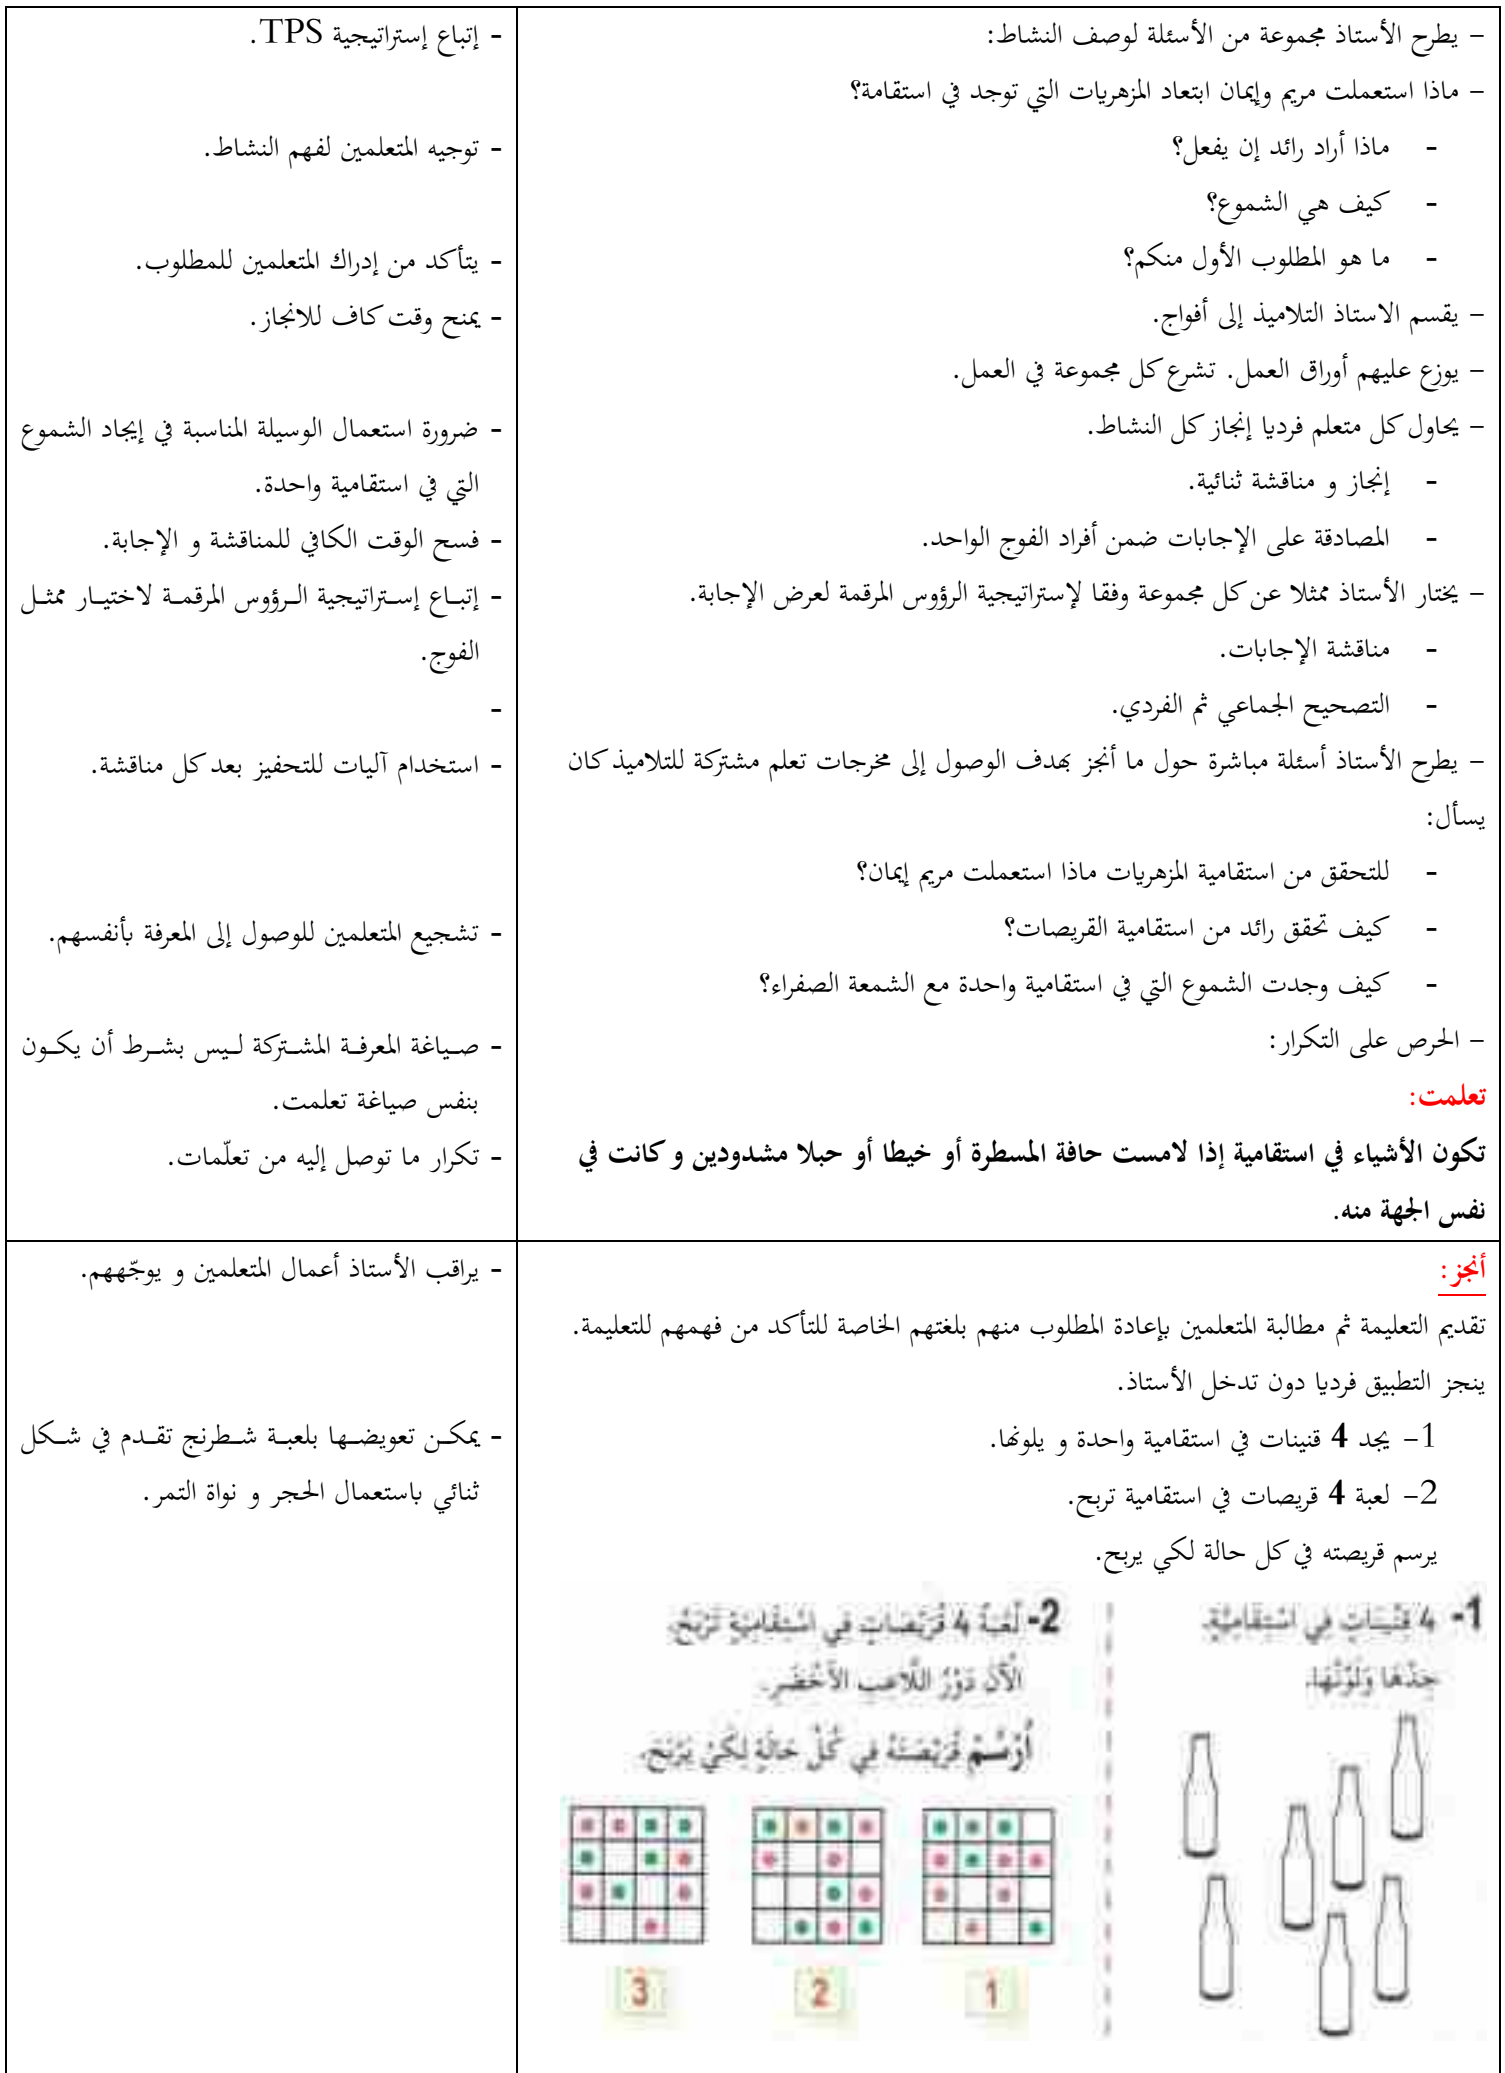 – يطرح الأستاذ مجموعة من الأسئلة لوصف النشاط:
– ماذا استعملت مريم وإيمان ابتعاد المزهريات التي توجد في استقامة؟
- ماذا أراد رائد إن يفعل؟
- كيف هي الشموع؟
- ما هو المطلوب الأول منكم؟
– يقسم الاستاذ التلاميذ إلى أفواج.
– يوزع عليهم أوراق العمل. تشرع كل مجموعة في العمل.
– يحاول كل متعلم فرديا إنجاز كل النشاط.
- إنجاز و مناقشة ثنائية.
- المصادقة على الإجابات ضمن أفراد الفوج الواحد.
– يختار الأستاذ ممثلا عن كل مجموعة وفقا لإستراتيجية الرؤوس المرقمة لعرض الإجابة.
- مناقشة الإجابات.
- التصحيح الجماعي ثم الفردي.
– يطرح الأستاذ أسئلة مباشرة حول ما أنجز بهدف الوصول إلى مخرجات تعلم مشتركة للتلاميذ كان
يسأل:
- للتحقق من استقامية المزهريات ماذا استعملت مريم إيمان؟
- كيف تحقق رائد من استقامية القريصات؟
- كيف وجدت الشموع التي في استقامية واحدة مع الشمعة الصفراء؟
– الحرص على التكرار:
تعلمت:
تكون الأشياء في استقامية إذا لامست حافة المسطرة أو خيطا أو حبلا مشدودين و كانت في
نفس الجهة منه.
- إتباع إستراتيجية TPS.
- توجيه المتعلمين لفهم النشاط.
- يتأكد من إدراك المتعلمين للمطلوب.
- يمنح وقت كاف للانجاز.
- ضرورة استعمال الوسيلة المناسبة في إيجاد الشموع
التي في استقامية واحدة.
- فسح الوقت الكافي للمناقشة و الإجابة.
- إتباع إستراتيجية الرؤوس المرقمة لاختيار ممثل
الفوج.
-
- استخدام آليات للتحفيز بعد كل مناقشة.
- تشجيع المتعلمين للوصول إلى المعرفة بأنفسهم.
- صياغة المعرفة المشتركة ليس بشرط أن يكون
بنفس صياغة تعلمت.
- تكرار ما توصل إليه من تعلّمات.
أنجز:
تقديم التعليمة ثم مطالبة المتعلمين بإعادة المطلوب منهم بلغتهم الخاصة للتأكد من فهمهم للتعليمة.
ينجز التطبيق فرديا دون تدخل الأستاذ.
1– يجد 4 قنينات في استقامية واحدة و يلونها.
2– لعبة 4 قريصات في استقامية تربح.
يرسم قريصته في كل حالة لكي يربح.
1- 4 قنينات في استقامية.
جدها ولونها.
2- لُعْبَةُ 4 قُرَيْصَاتٍ فِي اسْتِقَامِيَّةٍ تَرْبَحُ.
الْآنَ دَوْرُ اللَّاعِبِ الْأَخْضَرِ.
أُرْسُمْ قُرَيْصَتَهُ فِي كُلِّ حَالَةٍ لِكَيْ يَرْبَحَ.
1
2
3
- يراقب الأستاذ أعمال المتعلمين و يوجّههم.
- يمكن تعويضها بلعبة شطرنج تقدم في شكل
ثنائي باستعمال الحجر و نواة التمر.